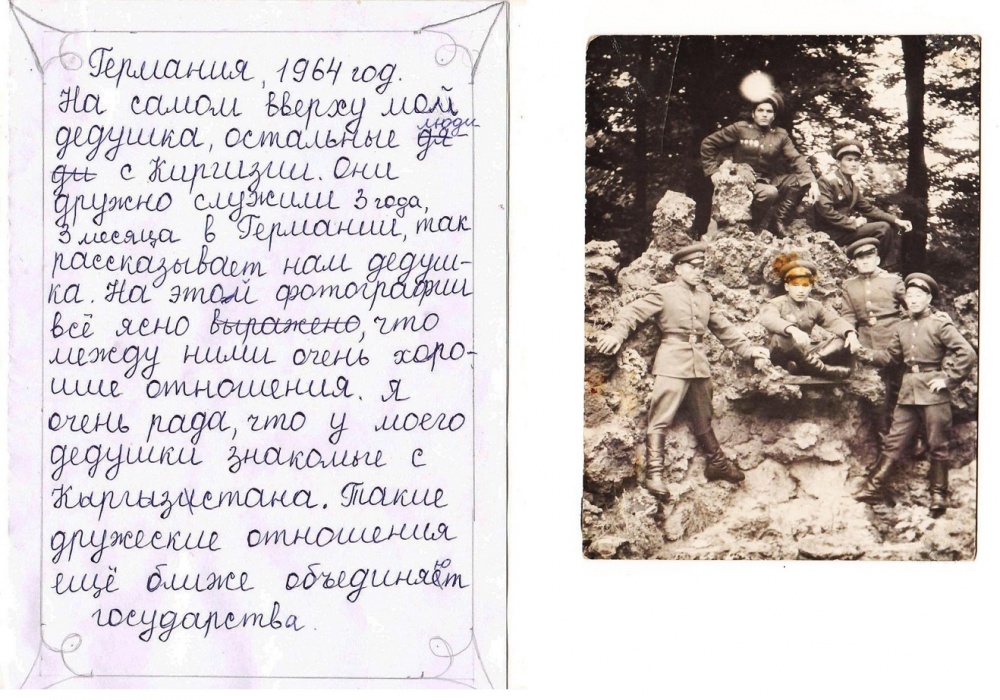 Германия, 1964 год.
На самом вверху мой
дедушка, остальные люди
с Киргизии. Они
дружно служили 3 года,
3 месяца в Германии, так
рассказывает нам дедуш-
ка. На этой фотографии
всё ясно выражено, что
между ними очень хоро-
шие отношения. Я
очень рада, что у моего
дедушки знакомые с
Кыргызстана. Такие
дружеские отношения
ещё ближе объединяет
государства.